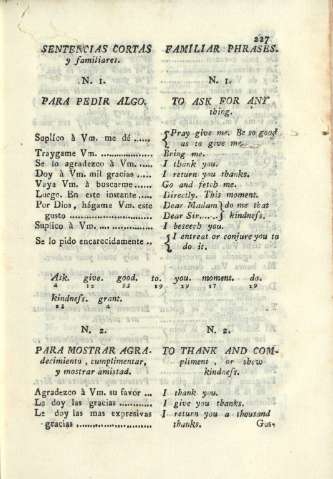 227
SENTENCIAS CORTAS FAMILIAR PHRASES.
y familiares.
N. 1. N. 1.
PARA PEDIR ALGO. TO ASK FOR ANY
thing.
Suplico à Vm. me dé ..... { Pray give me. Be so good
as to give me.
Traygame Vm. .............. Bring me.
Se lo agradezco à Vm. ..... I thank you.
Doy à Vm. mil gracias ..... I return you thanks.
Vaya Vm. à buscarme ...... Go and fetch me.
Luego. En este instante ..... Directly. This moment.
Por Dios, hágame Vm. este Dear Madam } do me that
gusto .................... Dear Sir...... } kindness.
Suplico à Vm. ............... I beseech you.
Se lo pido encarecidamente .. { I entreat or conjure you to
do it.
Ask. give. good. to. you. moment. do.
kindness. grant.
N. 2. N. 2.
PARA MOSTRAR AGRA- TO THANK AND COM-
decimiento, cumplimentar, pliment, or shew
y mostrar amistad. kindness.
Agradezco à Vm. su favor ... I thank you.
Le doy las gracias ............ I give you thanks.
Le doy las mas expresivas I return you a thousand
gracias .................... thanks. Gus-